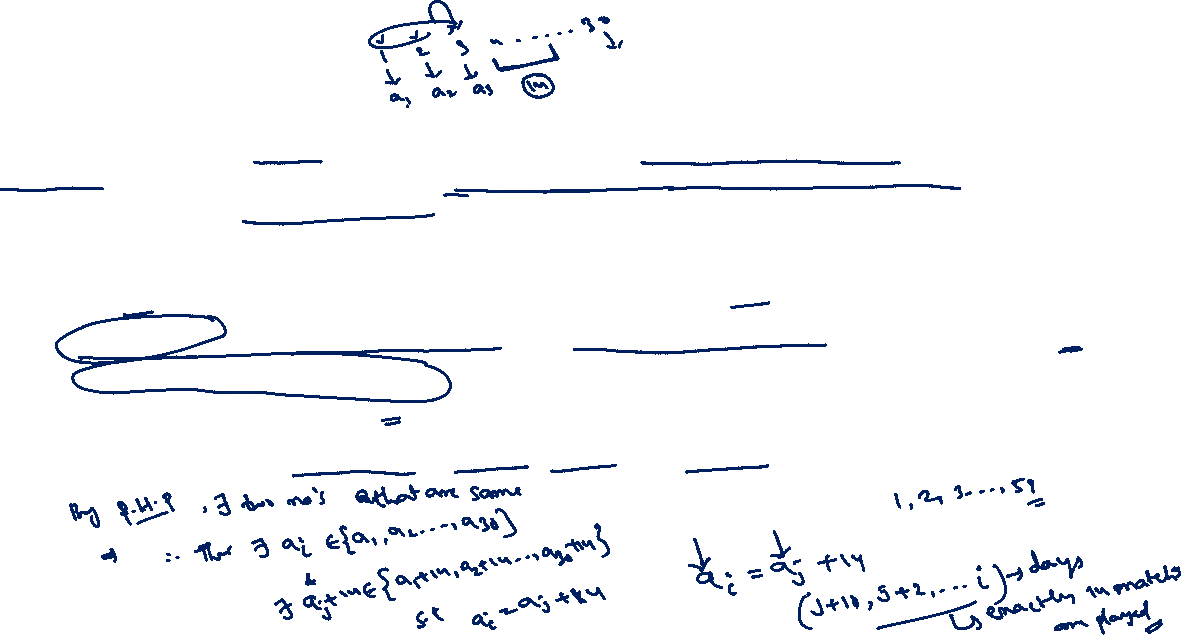 1 2 3 4 ..... 30
a1 a2 a3 14
By P.H.P, ∃ two no's that are same
⇒ ∴ Ther ∃ ai ∈ {a1, a2 ..., a30}
& ∃ aj+14 ∈ {a1+14, a2+14 ..., a30+14}
st ai = aj + 14
1, 2, 3 ..., 59
ai = aj + 14
(j+1, j+2, ... i) → days
↳ exactly 14 matches
are played